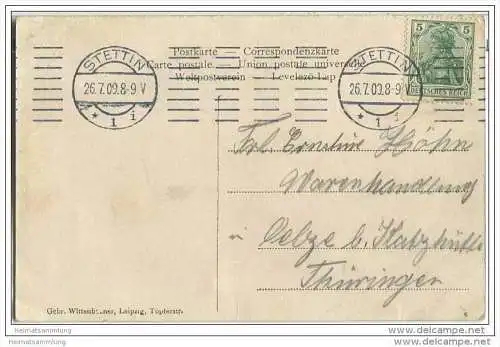 Postkarte — Correspondenzkarte
Carte postale — Union postale universelle
Weltpostverein — Levelező-Lap
STETTIN
26.7.09.8-9 V
* 1 i
STETTIN
26.7.09.8-9 V
* 1 i
5 5
DEUTSCHES REICH
Frl. Ernstine Höhn
Warenhandlung
in Oelze b. Katzhütte
Thüringen
Gebr. Leipzig, Töpferstr.
heimatsammlung
Heimatsammlung.com
heimatsammlung
Heimatsammlung.com